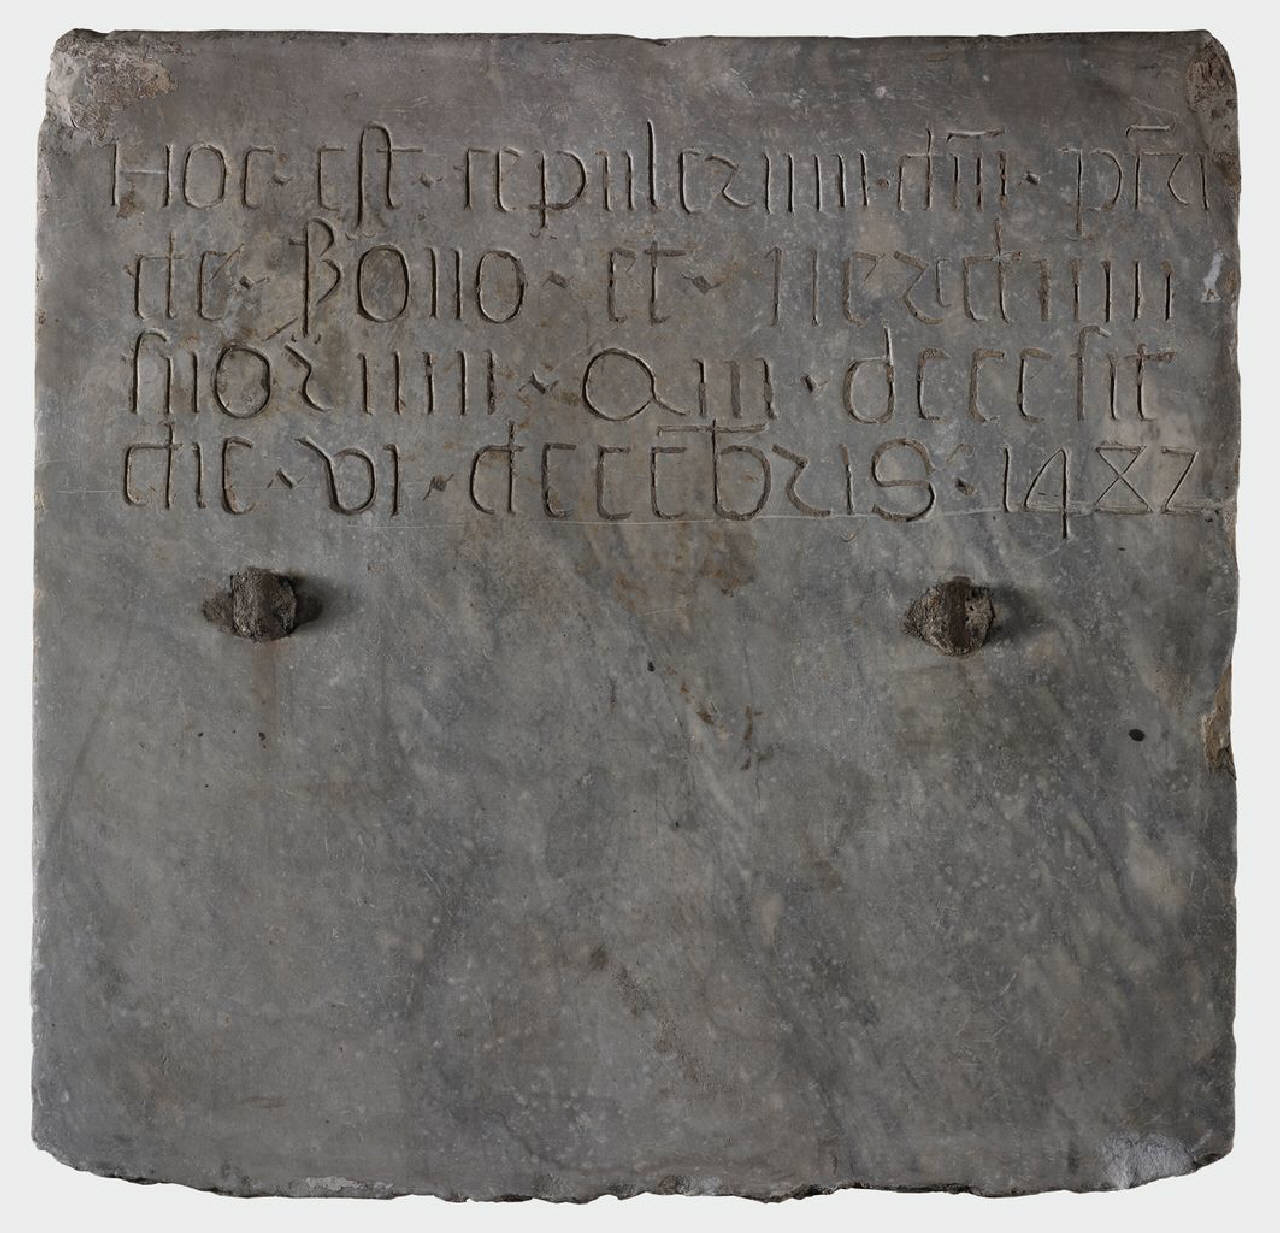 Hoc · est · cepulcrum · dñi · pr̃i
de Bono · et · heredum
suorum · Qui · decesit
die · vi · decēbris · 1482